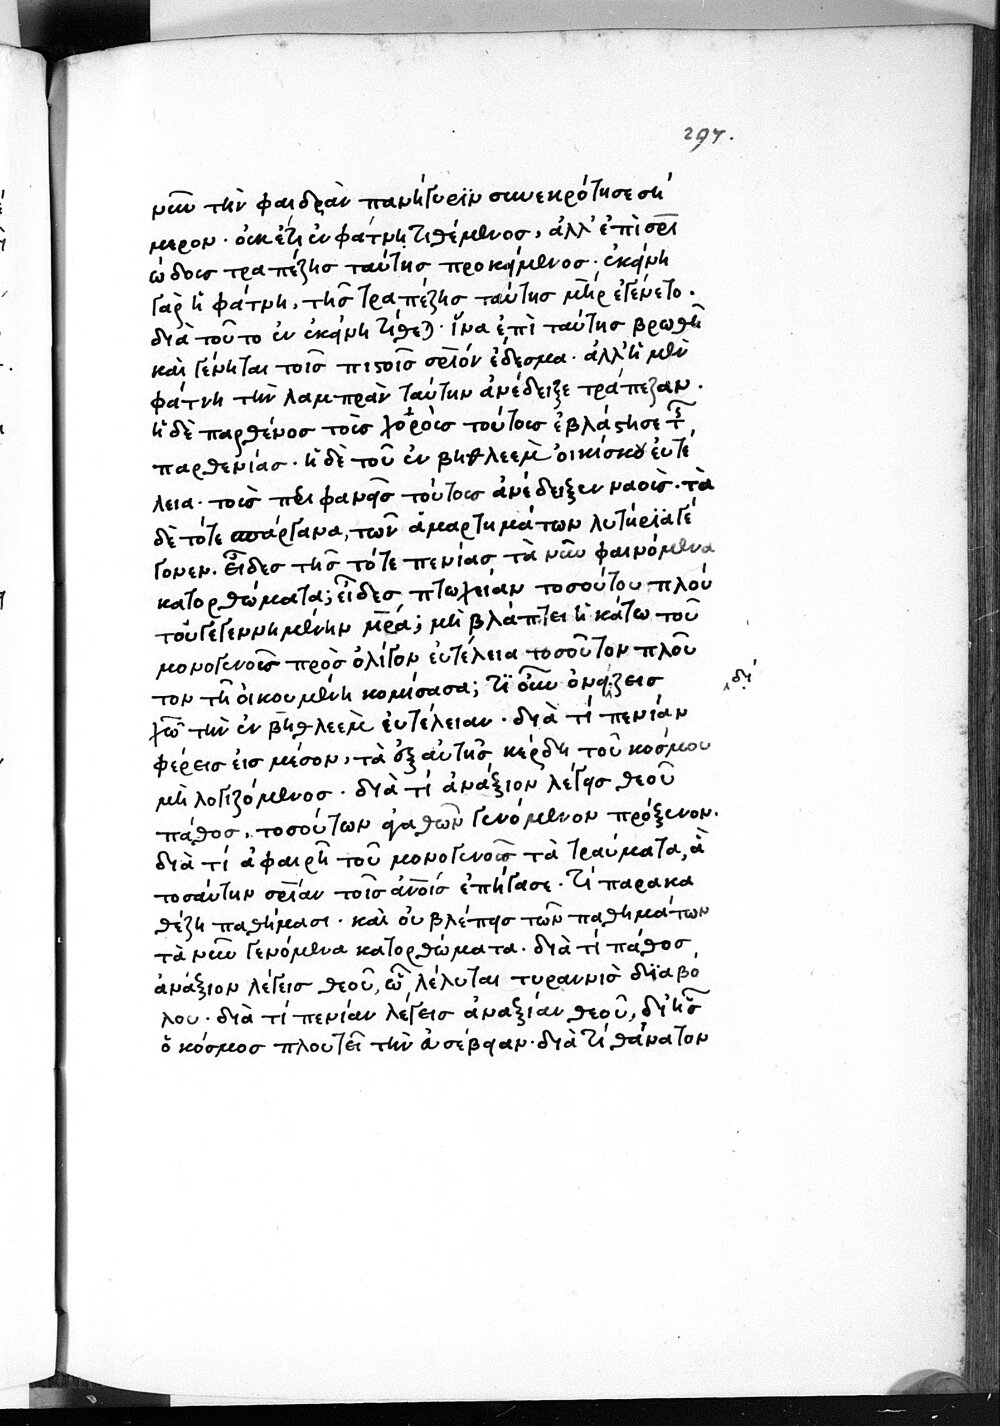 297.
νῦν τὴν φαιδρὰν πανήγυρϊν συνεκρότησε σή
μερον. οὐκ έτι ἐν φάτνη τιθέμενος, ἀλλ' ἐπὶ σρι
ώδους τραπέζης ταύτης προκείμενος. ἐκείνη
γὰρ ἡ φάτνη, τῆς τραπέζης ταύτης μηρ ἐγένετο.
διὰ τοῦτο ἐν ἐκείνη τίθεται. ἵνα ἐπὶ ταύτης βρωθῆ
καὶ γένηται τοῖς πιστοῖς σριόν ἔδεσμα. ἀλλ' ἡ μὲν
φάτνη τὴν λαμπρὰν ταύτην ἀνέδειξε τράπεζαν.
ἡ δὲ παρθένος τοὺς χοροὺς τούτους ἐβλάστησε τῆς
παρθενίας. ἡ δὲ τοῦ ἐν βηθλεὲμ οἰκίσκου ἐυτέ
λεια. τοὺς περιφανεῖς τούτους ἀνέδειξεν ναούς. τὰ
δὲ τότε σπάργανα, τῶν ἁμαρτημάτων λυτήρϊα γέ
γονεν. Εἶδες τῆς τότε πενίας τὰ νῦν φαινόμενα
κατορθώματα; εἶδες πτωχείαν τοσούτου πλού
του γεγεννημένην μρά; μὴ βλάπτει ἡ κάτω τοῦ
μονογενοῦς πρὸς ὀλίγον ἐυτέλεια τοσοῦτον πλοῦ
τον τῆ ὀικουμένη κομίσασα; Τί οὖν ὀνειδίζεις
χῶ τὴν ἐν βηθλεὲμ ἐυτέλειαν. διὰ τί πενίαν
φέρεις ἐις μέσον, τὰ ἐξ αὐτῆς κέρδη τοῦ κόσμου
μὴ λογιζόμενος. διὰ τί ἀνάξιον λέγεις θεοῦ
πάθος, τοσούτων ἀγαθῶν γενόμενον πρόξενον.
διὰ τί ἀφαιρῆ τοῦ μονογενοῦς τὰ τραύματα, ἃ
τοσαύτην σρίαν τοῖς ἀνοίς ἐπήγασε. Τί παρακα
θέζη παθήμασι. καὶ οὐ βλέπεις τῶν παθημάτων
τὰ νῦν γενόμενα κατορθώματα. διὰ τί πάθος
ἀνάξιον λέγεις θεοῦ, ὧ λέλυται τυραννὶς διϊαβό
λου. διὰ τί πενίαν λέγεις ἀναξίαν θεοῦ, δι' ἧς
ὁ κόσμος πλουτεῖ τὴν ἐυσέβειαν. διὰ Τί θάνατον